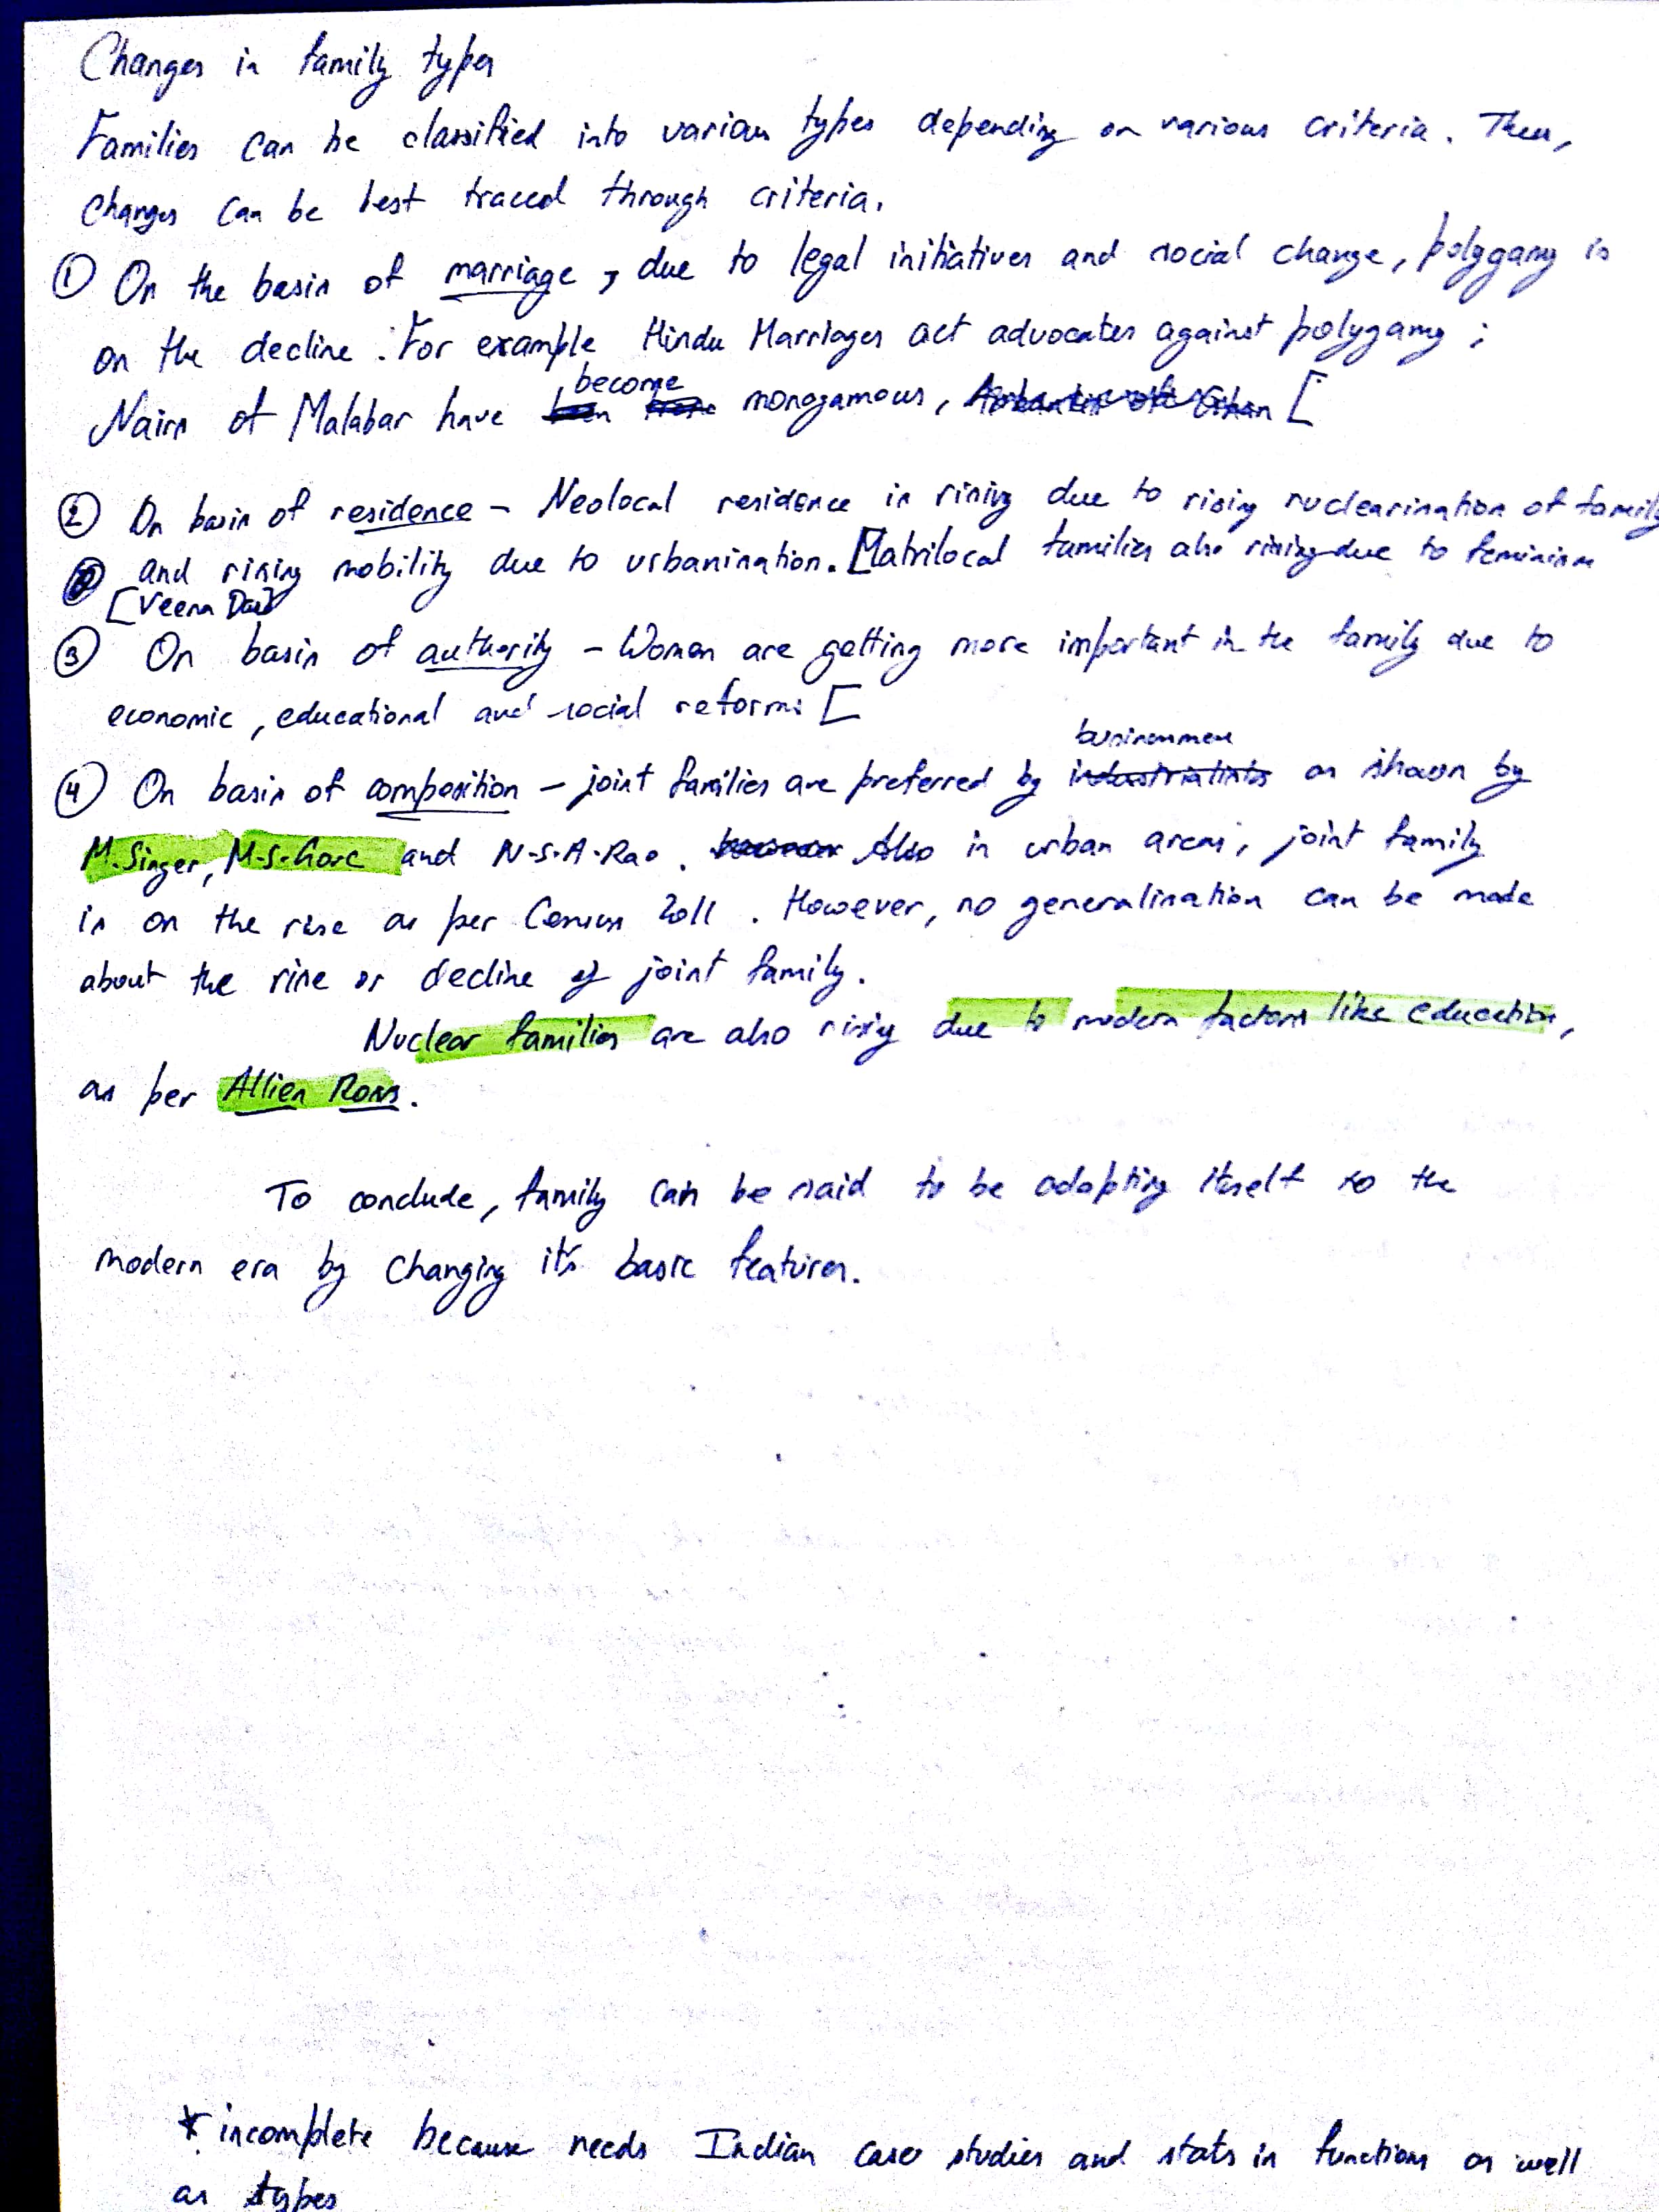 Changes in family types
Families can be classified into various types depending on various criteria. Then,
changes can be best traced through criteria.
① On the basis of marriage, due to legal initiatives and social change, polygamy is
on the decline. For example Hindu Marriages act advocates against polygamy;
Nairs of Malabar have become monogamous, [
② On basis of residence - Neolocal residence is rising due to rising nuclearisation of family
and rising mobility due to urbanisation. [Matrilocal families also rising due to feminism
[Veena Das]
③ On basis of authority - Women are getting more important in the family due to
economic, educational and social reforms [
④ On basis of composition - joint families are preferred by businessmen as shown by
M. Singer, M.S. Gore and N.S.A. Rao. Also in urban areas, joint family
is on the rise as per Census 2011. However, no generalisation can be made
about the rise or decline of joint family.
Nuclear families are also rising due to modern factors like education,
as per Allien Ross.
To conclude, family can be said to be adapting itself to the
modern era by changing it's basic features.
* incomplete because needs Indian case studies and stats in functions as well
as types